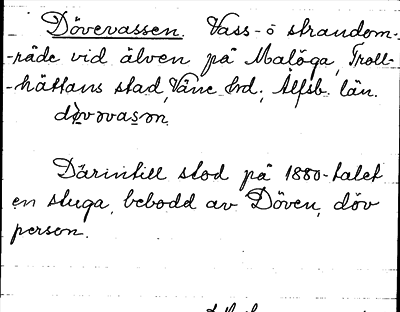 Dövevassen. Vass- o strandom-
-råde vid älven på Malöga, Troll-
-hättans stad, Väne hrd., Älfsb. län.
dövəvasən
Därintill stod på 1880-talet
en stuga, bebodd av Döven, döv
person.